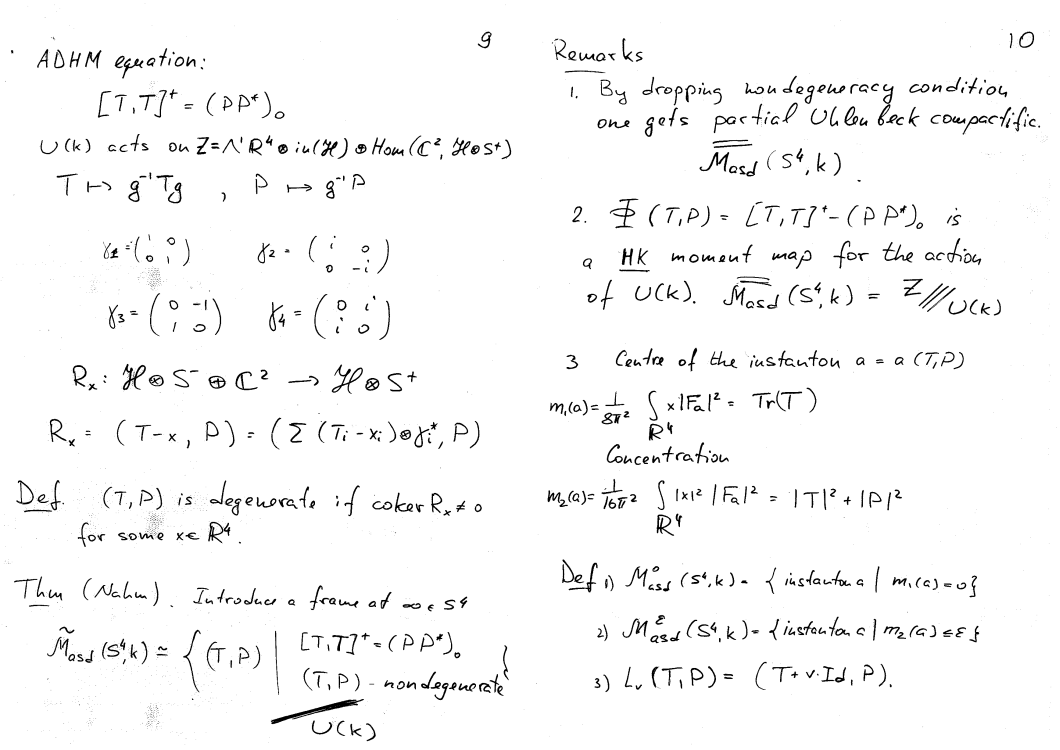 9
ADHM equation:
[T,T]⁺ = (PP*)₀
U(k) acts on Z = Λ¹ℝ⁴ ⊗ iu(ℋ) ⊕ Hom(ℂ², ℋ⊗S⁺)
T ↦ g⁻¹Tg , P ↦ g⁻¹P
γ₁ = (1 0; 0 1) γ₂ = (i 0; 0 -i)
γ₃ = (0 -1; 1 0) γ₄ = (0 i; i 0)
Rₓ: ℋ⊗S⁻ ⊕ ℂ² → ℋ⊗S⁺
Rₓ = (T-x, P) = (Σ (Ti - xi)⊗γi*, P)
Def. (T,P) is degenerate if coker Rₓ ≠ 0
for some x∈ ℝ⁴.
Thm (Nahm). Introduce a frame at ∞ ∈ S⁴
M̃asd (S⁴,k) ≃ { (T,P) | [T,T]⁺ = (PP*)₀
(T,P) - nondegenerate }
U(k)
10
Remarks
1. By dropping nondegeneracy condition
one gets partial Uhlenbeck compactific.
M̿asd (S⁴, k).
2. Φ (T,P) = [T,T]⁺ - (PP*)₀ is
a HK moment map for the action
of U(k). M̿asd (S⁴, k) = Z///U(k)
3 Centre of the instanton a = a (T,P)
m₁(a) = 1/8π² ∫ℝ⁴ x|Fa|² = Tr(T)
Concentration
m₂(a) = 1/16π² ∫ℝ⁴ |x|² |Fa|² = |T|² + |P|²
Def 1) M⁰asd (S⁴, k) = { instanton a | m₁(a) = 0}
2) M^εasd (S⁴, k) = {instanton a | m₂(a) ≤ ε}
3) Lᵥ (T,P) = (T + v·Id, P).